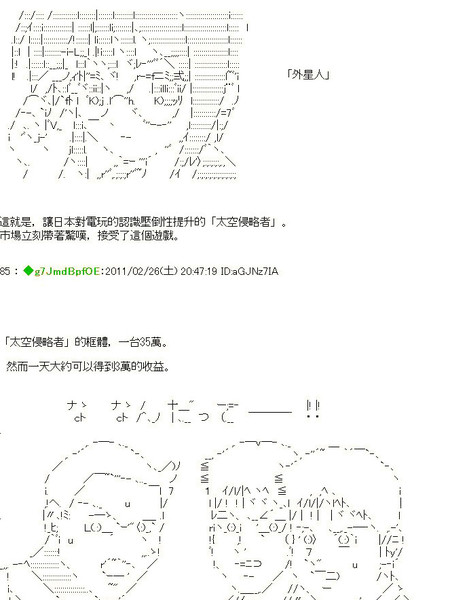 「外星人」
這就是，讓日本對電玩的認識壓倒性提升的「太空侵略者」。
市場立刻帶著驚嘆，接受了這個遊戲。
85： ◆g7JmdBpfOE：2011/02/26(土) 20:47:19 ID:aGJNz7IA
「太空侵略者」的框體，一台35萬。
然而一天大約可以得到3萬的收益。